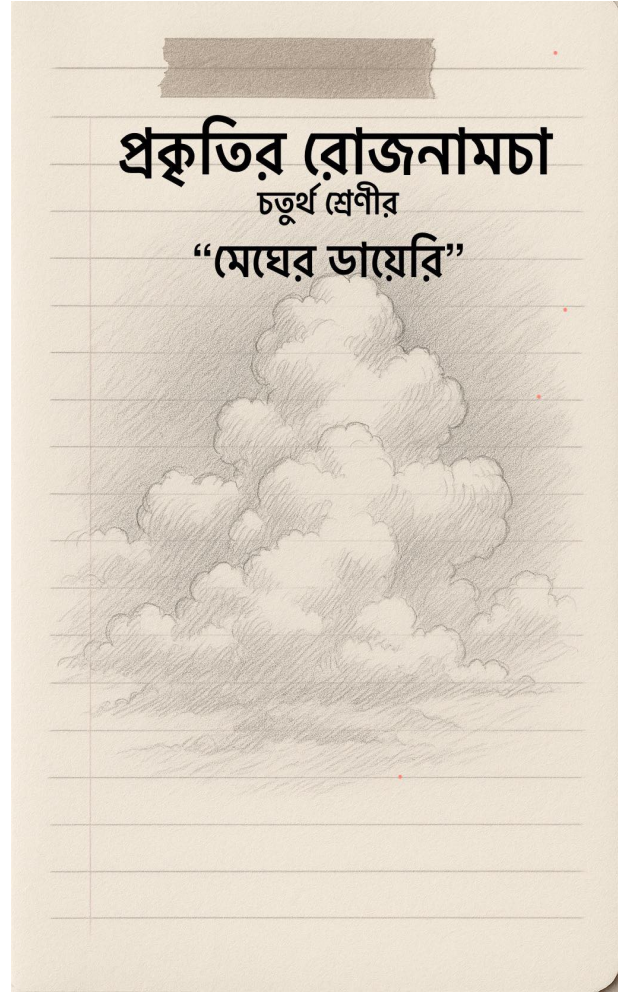 প্রকৃতির রোজনামচা
চতুর্থ শ্রেণীর
“মেঘের ডায়েরি”